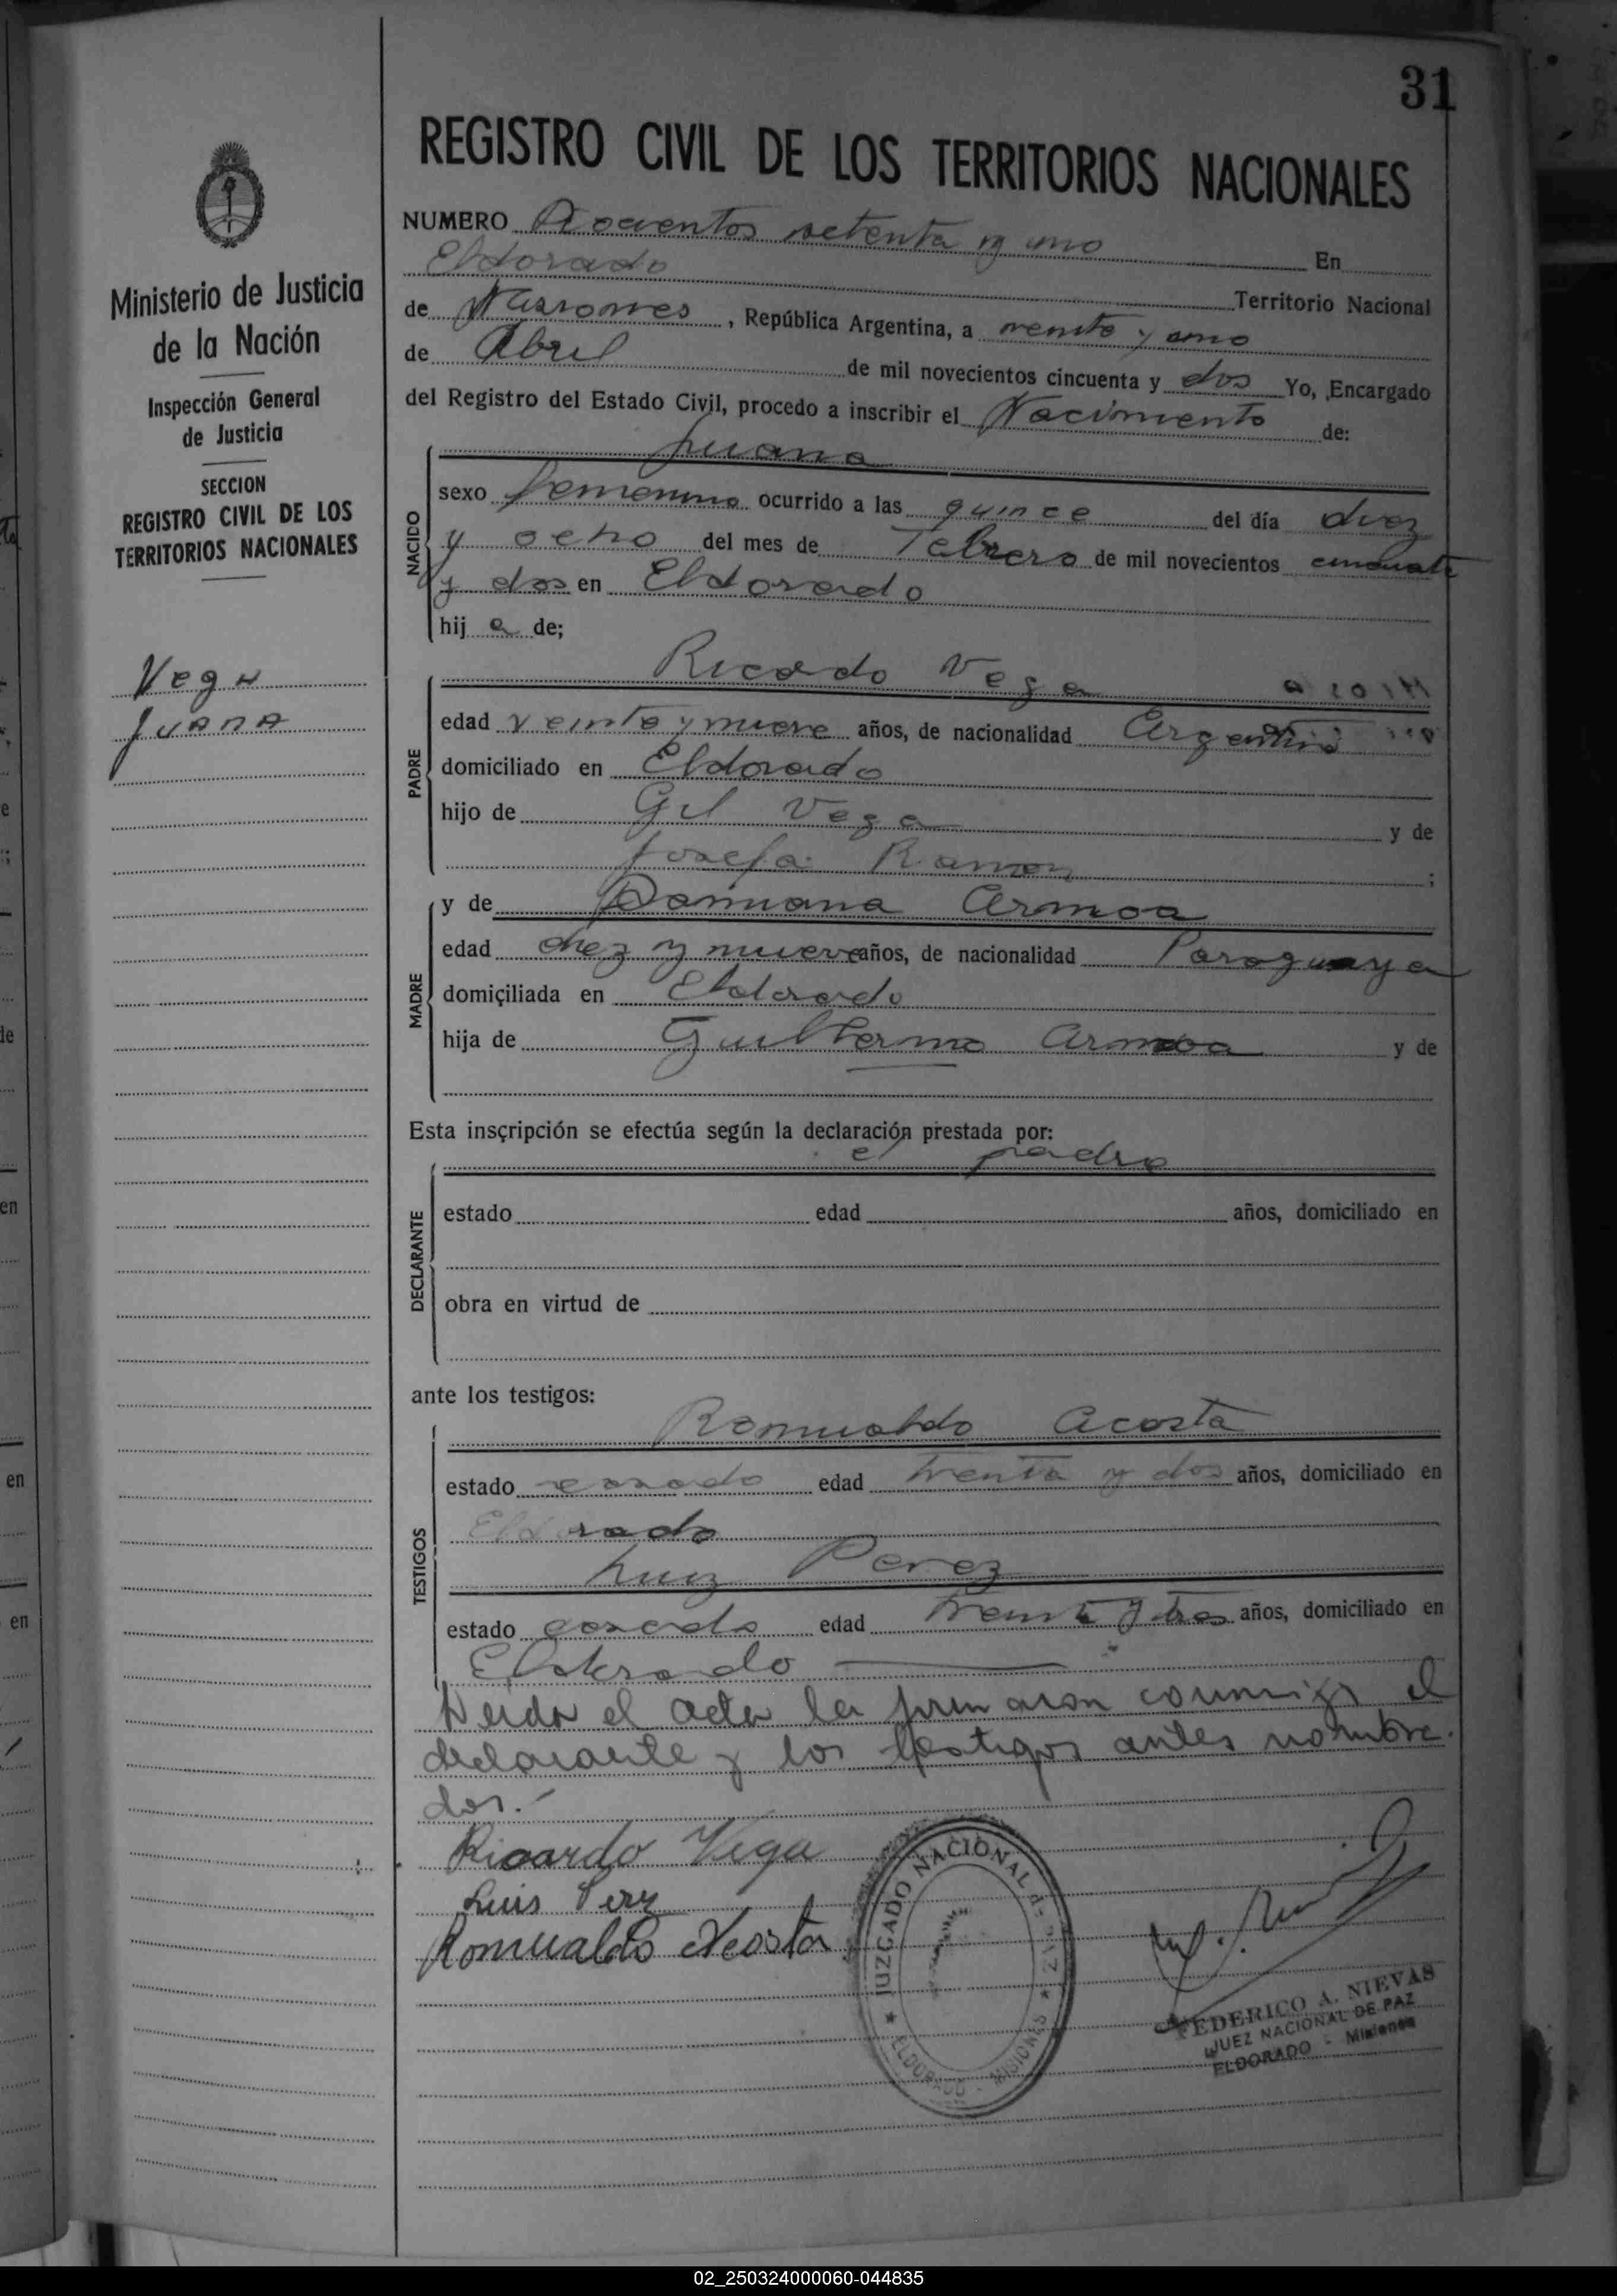 31
REGISTRO CIVIL DE LOS TERRITORIOS NACIONALES
Ministerio de Justicia
de la Nación
Inspección General
de Justicia
SECCION
REGISTRO CIVIL DE LOS
TERRITORIOS NACIONALES
Vega
Juana
NUMERO Doscientos setenta y uno En
Eldorado Territorio Nacional
de Misiones, República Argentina, a veinte y uno
de Abril de mil novecientos cincuenta y dos Yo, Encargado
del Registro del Estado Civil, procedo a inscribir el Nacimiento de:
NACIDO
Juana
sexo femenino ocurrido a las quince del día diez
y ocho del mes de Febrero de mil novecientos cincuenta
y dos en Eldorado
hij a de;
PADRE
Ricardo Vega
edad veinte y nueve años, de nacionalidad Argentino
domiciliado en Eldorado
hijo de Gil Vega y de
Josefa Ramon ;
MADRE
y de Damiana Armoa
edad diez y nueve años, de nacionalidad Paraguaya
domiciliada en Eldorado
hija de Guillerma Armoa y de
Esta inscripción se efectúa según la declaración prestada por:
DECLARANTE
el padre
estado edad años, domiciliado en
obra en virtud de
ante los testigos:
TESTIGOS
Romualdo Acosta
estado casado edad treinta y dos años, domiciliado en
Eldorado
Luiz Perez
estado casado edad treinta y tres años, domiciliado en
Eldorado
Leida el acta la firmaron conmigo el
declarante y los testigos antes nombra
dos.
Ricardo Vega
Luis Perz
Romualdo Acosta
JUZGADO NACIONAL de PAZ
ELDORADO - MISIONES
FEDERICO A. NIEVAS
JUEZ NACIONAL DE PAZ
ELDORADO - Misiones
02_250324000060-044835